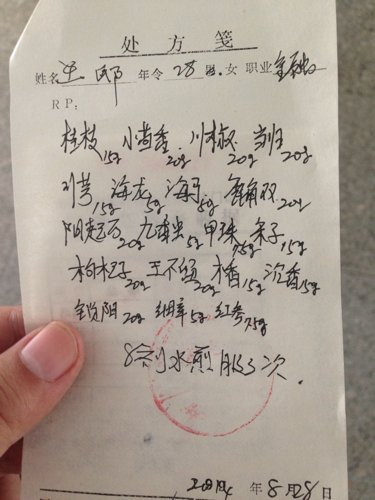 处方笺
姓名 王 年令 28 男.女 职业
RP:
桂枝15g 小茴香20g 川椒20g 当归20g
川芎15g 海龙5g 海马5g 鹿角双20g
阳起石20g 九香虫5g 甲珠7.5g 朱子15g
枸杞子20g 王不留20g 木香15g 沉香15g
锁阳20g 细辛5g 红参7.5g
8剂水煎服3次.
2014年8月28日